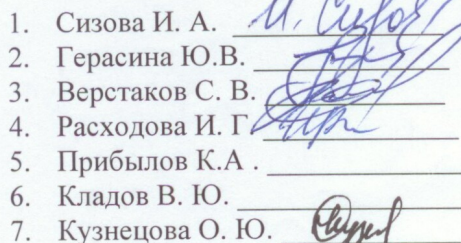 1. Сизова И. А.
2. Герасина Ю.В.
3. Верстаков С. В.
4. Расходова И. Г
5. Прибылов К.А .
6. Кладов В. Ю.
7. Кузнецова О. Ю.